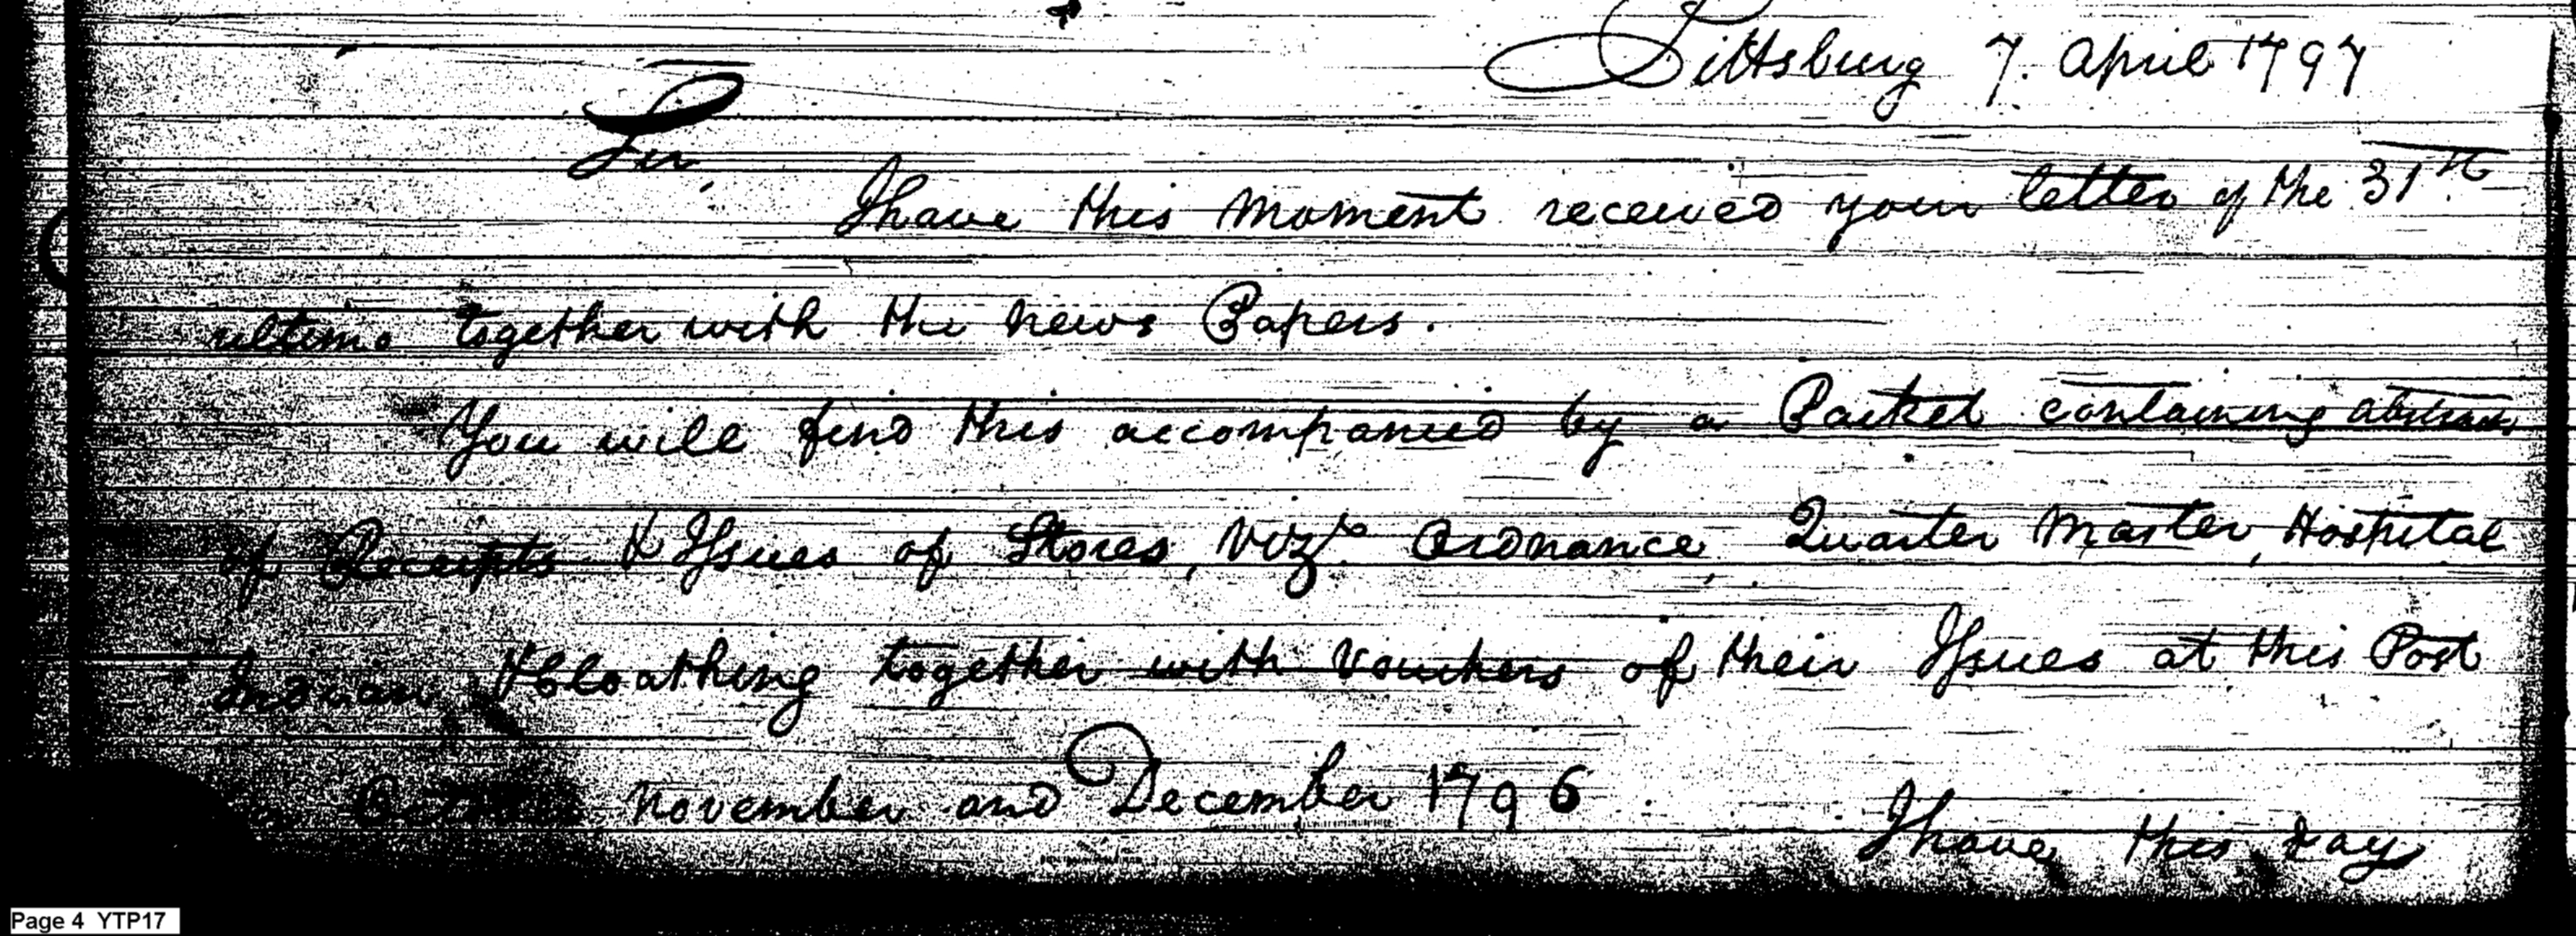 Pittsburg 7. April 1797
Sir,
I have this Moment received your letter of the 31st
ultimo together with the News Papers.
You will find this accompanied by a Packet containing abstracts
of Receipts & Issues of Stores, Vizt. Ordnance, Quarter Master, Hospital
Indian, & Cloathing together with Vouchers of their Issues at this Post
in October, November and December 1796
I have this day
Page 4 YTP17